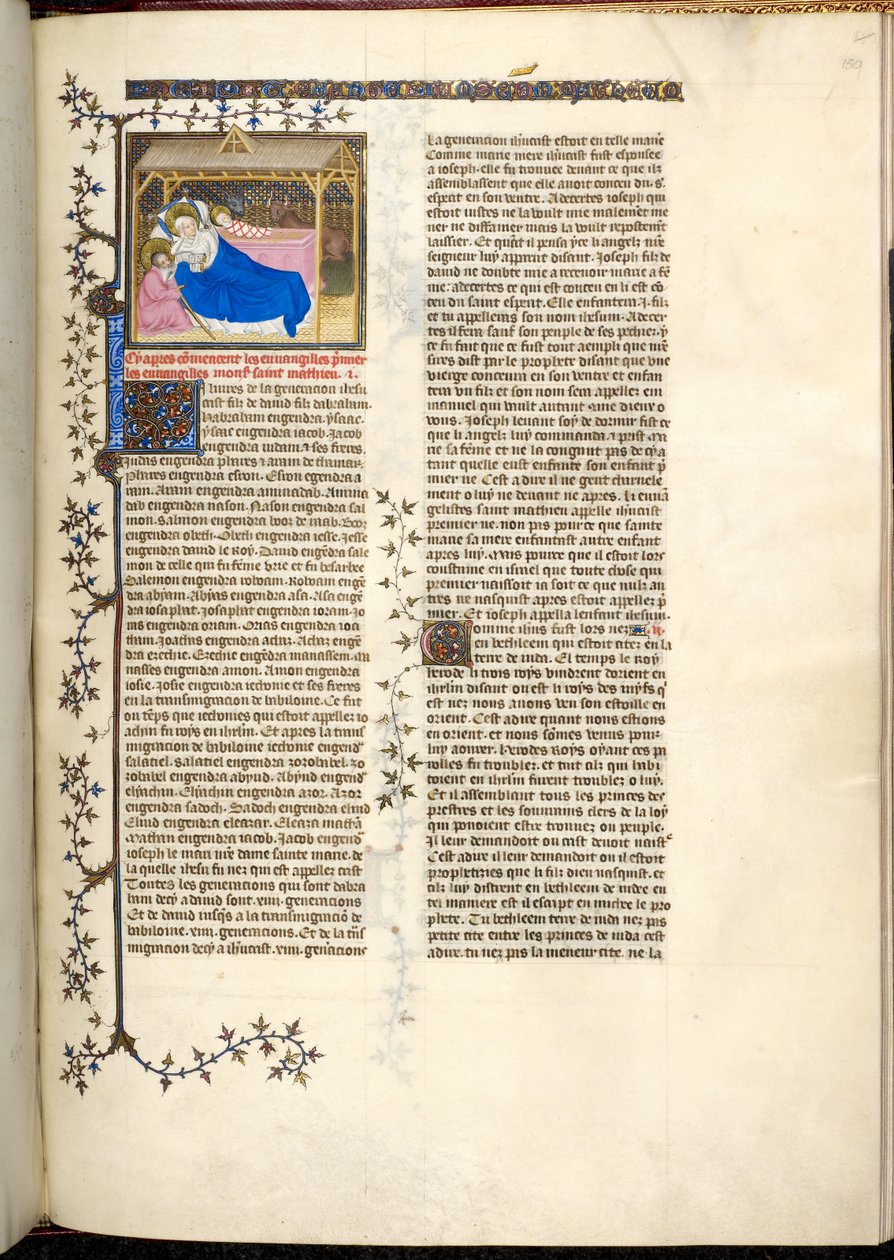 159
Cy apres cõmencent les euuangilles p̃mier
les euuangilles mons̃ saint mathieu. .i.
liures de la generacion ihesu
crist filz de dauid filz dabraham.
Habraham engendra. ysaac.
ysaac engendra iacob. Jacob
engendra iudam ⁊ ses freres.
Judas engendra phares ⁊ aram de thamar.
Phares engendra esron. Esron egendra a
ram. Aram engendra aminadab. Amina
dab engendra nason. Nason engendra sal
mon. Salmon engendra booz de raab. Booz
engendra obeth. Obeth engendra iesse. Jesse
engendra dauid le Roy. Dauid engẽdra sale
mon de celle qui fu fẽme vrie et fu bersabee
Salemon engendra roboam. Roboam engẽ
dra abyam. Abyas engendra asa. Asa engẽ
dra iosaphat. Josaphat engendra ioram. Jo
ras engendra oziam. Ozias engendra ioa
tham. Joathas engendra achaz. Achaz engẽ
dra ezechie. Ezechie engẽdra manassem. Ma
nasses engendra amon. Amon engendra
iosie. Josie engendra iechonie et ses freres
en la transmigracion de babiloine. Ce fut
ou tẽps que iechonies qui estoit appellez io
achin fu roys en ihrlm. Et apres la trans
migracion de babiloine iechonie engend᷑
salatiel. Salatiel engendra zorobabel. zo
robabel engendra abyud. Abyud engend᷑
elyachin. Elyachin engendra azor. Azor
engendra sadoch. Sadoch engendra eliud
Eliud engendra eleazar. Eleazar mathã
Mathan engendra iacob. Jacob engend᷑
ioseph le mari nr̃e dame sainte marie. de
la quelle ihesu fu nez qui est appellez crist
Toutes les generacions qui sont dabra
ham decy a dauid sont .xiiii. generacions
Et de dauid iusq̃s a la transmigraciõ de
babiloine. xiiii. generacions. Et de la trãs
migracion decy a ihũcrist. xiiii. gen̾acions
La generacion ihũcrist estoit en telle manie
Comme marie mere ihũcrist fust espousee
a ioseph. elle fu trouuee deuant ce que ilz
assemblassent que elle auoit conceu du .s.
esperit en son ventre. Adecertes ioseph qui
estoit iustes ne la voult mie malemẽt me
ner ne diffamer mais la voult repostemẽt
laissier. Et quãt il pensa yce li angelz nr̃e
seigneur luy apparut disant. Joseph filz de
dauid ne doubte mie a receuoir marie a fẽ
me. adecertes ce qui est conceu en li est cõ
ceu du saint esperit. Elle enfantera .i. filz
et tu appelleras son nom ihesum. Adecer
tes il fera sauf son peuple de ses pechiez. y
ce fu fait que ce fust tout aempli que nr̃e
sires dist par le prophete disant que vne
vierge conceura en son ventre et enfan
tera vn filz et son nom sera appellez em
manuel qui vault autant cõme dieux o
vous. Joseph leuant soy de dormir fist ce
que li angelz luy commanda. ⁊ prist ma
rie sa fẽme et ne la congnut pas de cy a
tant quelle eust enfante son enfant p̃
mier ne Cest a dire il ne geut charnele
ment o luy ne deuant ne apres. li euuã
gelistes saint mathieu appelle ihũcrist
premier ne. non pas pour ce que sainte
marie sa mere enfantast autre enfant
apres luy. Mais pource que il estoit lors
coustume en israel que toute chose qui
premier naissoit ia soit ce que nulz au
tres ne nasquist apres estoit appellez p̃
mier. Et ioseph appella lenfant ihesum.
Comme ihũs fust lors nez .ii.
en bethleem qui estoit citez en la
terre de iuda. El temps le Roy
herode li trois roys vindrent dorient en
ihrlm disant ou est li roys des iuifs q̃
est nez nous auons veu son estoille en
orient. Cest adire quant nous estions
en orient. et nous sõmes venus pour
luy aourer. Herodes Roys oyant ces pa
rolles fu troublez. et tuit cilz qui habi
toient en ihrlm furent troublez o luy.
Et il assemblant tous les princes des
prestres et les souuerains clers de la loy
qui pouoient estre trouuez ou peuple.
Il leur demandoit ou crist deuoit naistᷣ
Cest adire il leur demandoit ou il estoit
prophetizies que li filz dieu nasquist. et
cilz luy distrent en bethleem de iudee en
tel maniere est il escript en michee le pro
phete. Tu bethleem terre de iuda nez pas
petite cite entre les princes de iuda cest
adire. tu nez pas la meneur cite. ne la